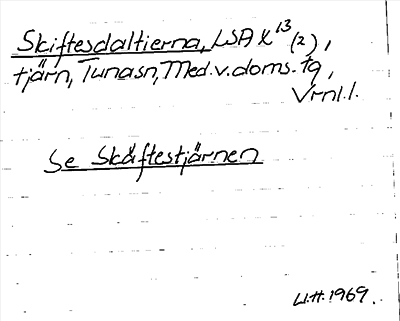 Skiftesdaltierna, LSA X¹³ (2),
tjärn, Tunasn, Med.v.doms.tg,
Vrml.l.
Se Skäftestjärnen
U.H. 1969.